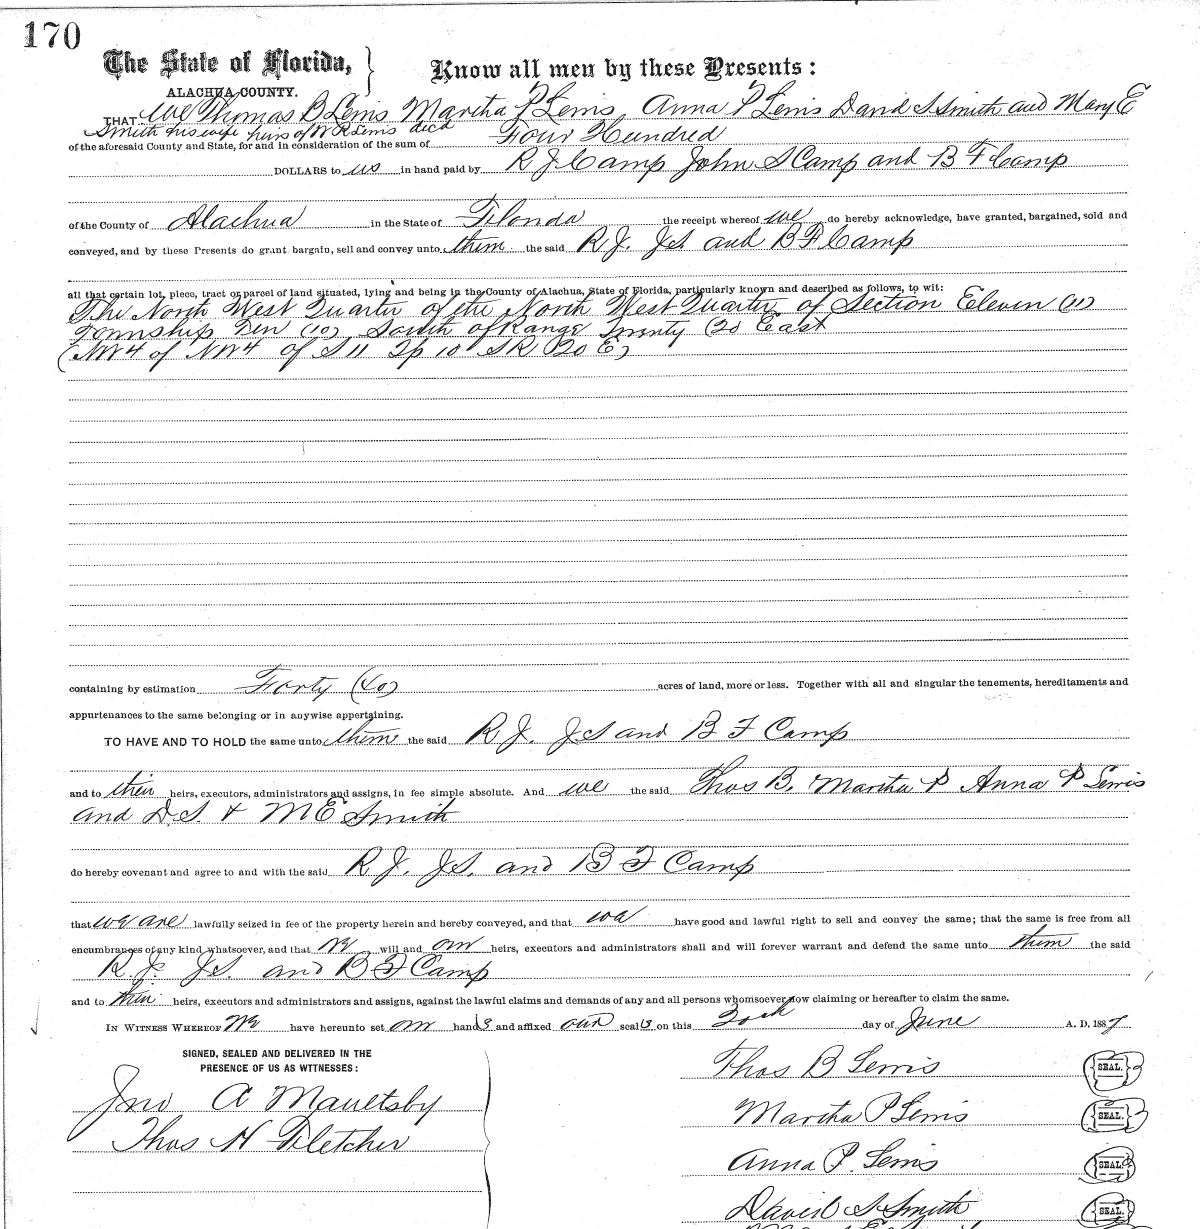 170
The State of Florida, }
ALACHUA COUNTY.
Know all men by these Presents:
THAT We Thomas B Lewis Martha P Lewis Anna P Lewis David S Smith and Mary E
Smith his wife heirs of W R Lewis decd
of the aforesaid County and State, for and in consideration of the sum of Four Hundred
DOLLARS to us in hand paid by R J Camp John S Camp and B F Camp
of the County of Alachua in the State of Florida the receipt whereof we do hereby acknowledge, have granted, bargained, sold and
conveyed, and by these Presents do grant bargain, sell and convey unto them the said R. J. JS and B F Camp
all that certain lot, piece, tract or parcel of land situated, lying and being in the County of Alachua, State of Florida, particularly known and described as follows, to wit:
The North West Quarter of the North West Quarter of Section Eleven (11)
Township Ten (10) South of Range Twenty (20 East
(NW4 of NW4 of S 11 Tp 10 S R 20 E)
containing by estimation Forty (40) acres of land, more or less. Together with all and singular the tenements, hereditaments and
appurtenances to the same belonging or in anywise appertaining.
TO HAVE AND TO HOLD the same unto them the said R. J. JS and B F Camp
and to their heirs, executors, administrators and assigns, in fee simple absolute. And we the said Thos B. Martha P Anna P Lewis
and D.S. & M E Smith
do hereby covenant and agree to and with the said R J. J.S. and B F Camp
that we are lawfully seized in fee of the property herein and hereby conveyed, and that we have good and lawful right to sell and convey the same; that the same is free from all
encumbrances of any kind whatsoever, and that We will and our heirs, executors and administrators shall and will forever warrant and defend the same unto them the said
R. J. JS. and B F Camp
and to their heirs, executors and administrators and assigns, against the lawful claims and demands of any and all persons whomsoever now claiming or hereafter to claim the same.
IN WITNESS WHEREOF We have hereunto set our hands and affixed our seals on this day of June A. D. 1887
SIGNED, SEALED AND DELIVERED IN THE
PRESENCE OF US AS WITNESSES:
Jno A Maultsby
Thos H Fletcher
Thos B Lewis SEAL.
Martha P Lewis SEAL.
Anna P. Lewis SEAL.
David S Smith SEAL.